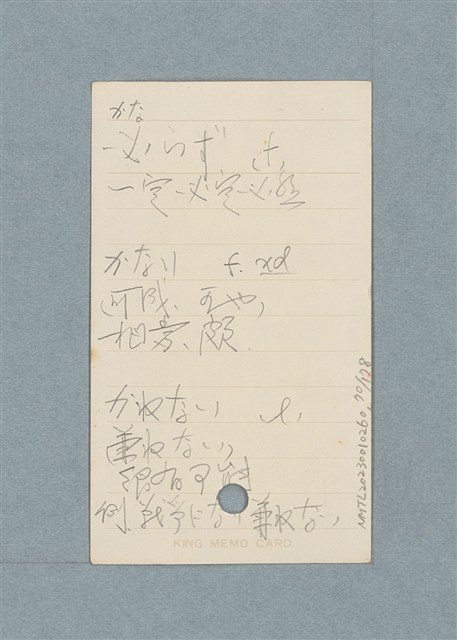 かな
必らず
一定 必定 必然
かなり f. xd
可成、可也、
相当、頗
かねない
兼ねない、
很有可能
例、戦争になり兼ねない
KING MEMO CARD
NMTL20230010260, 70/178